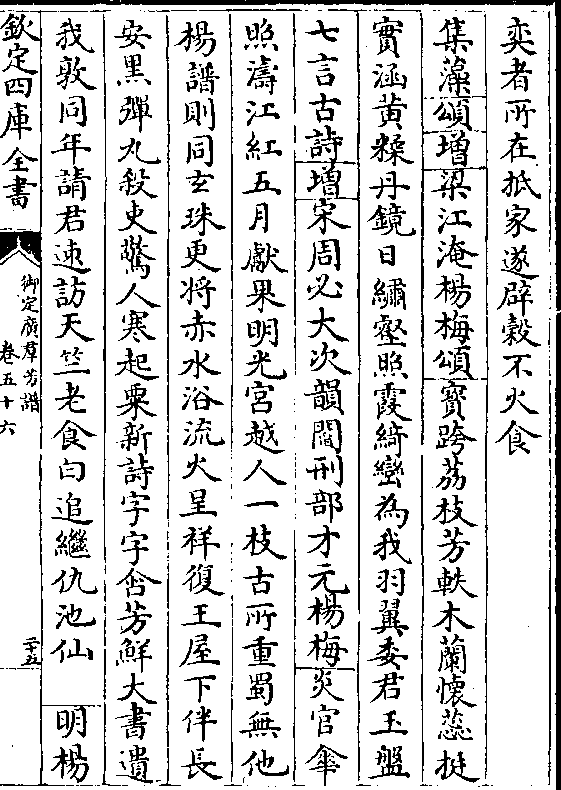 奕者所在抵家遂辟榖不火食
集藻頌增梁江淹楊梅頌寳跨荔枝芳軼木蘭懷蕊挺
實涵黄糅丹鏡日繡壑照霞綺巒為我羽翼委君玉盤
七言古詩增宋周必大次韻閻刑部才元楊梅炎官傘
照濤江紅五月獻果明光宮越人一枝古所重蜀無他
楊譜則同玄珠更將赤水浴流火呈祥復王屋下伴長
安黒彈丸殺吏驚人寒起粟新詩字字含芳鮮大書遺
我敦同年請君速訪天竺老食曰追繼仇池仙 明楊
欽定四庫全書
御定廣羣芳譜
卷五十六
二十五